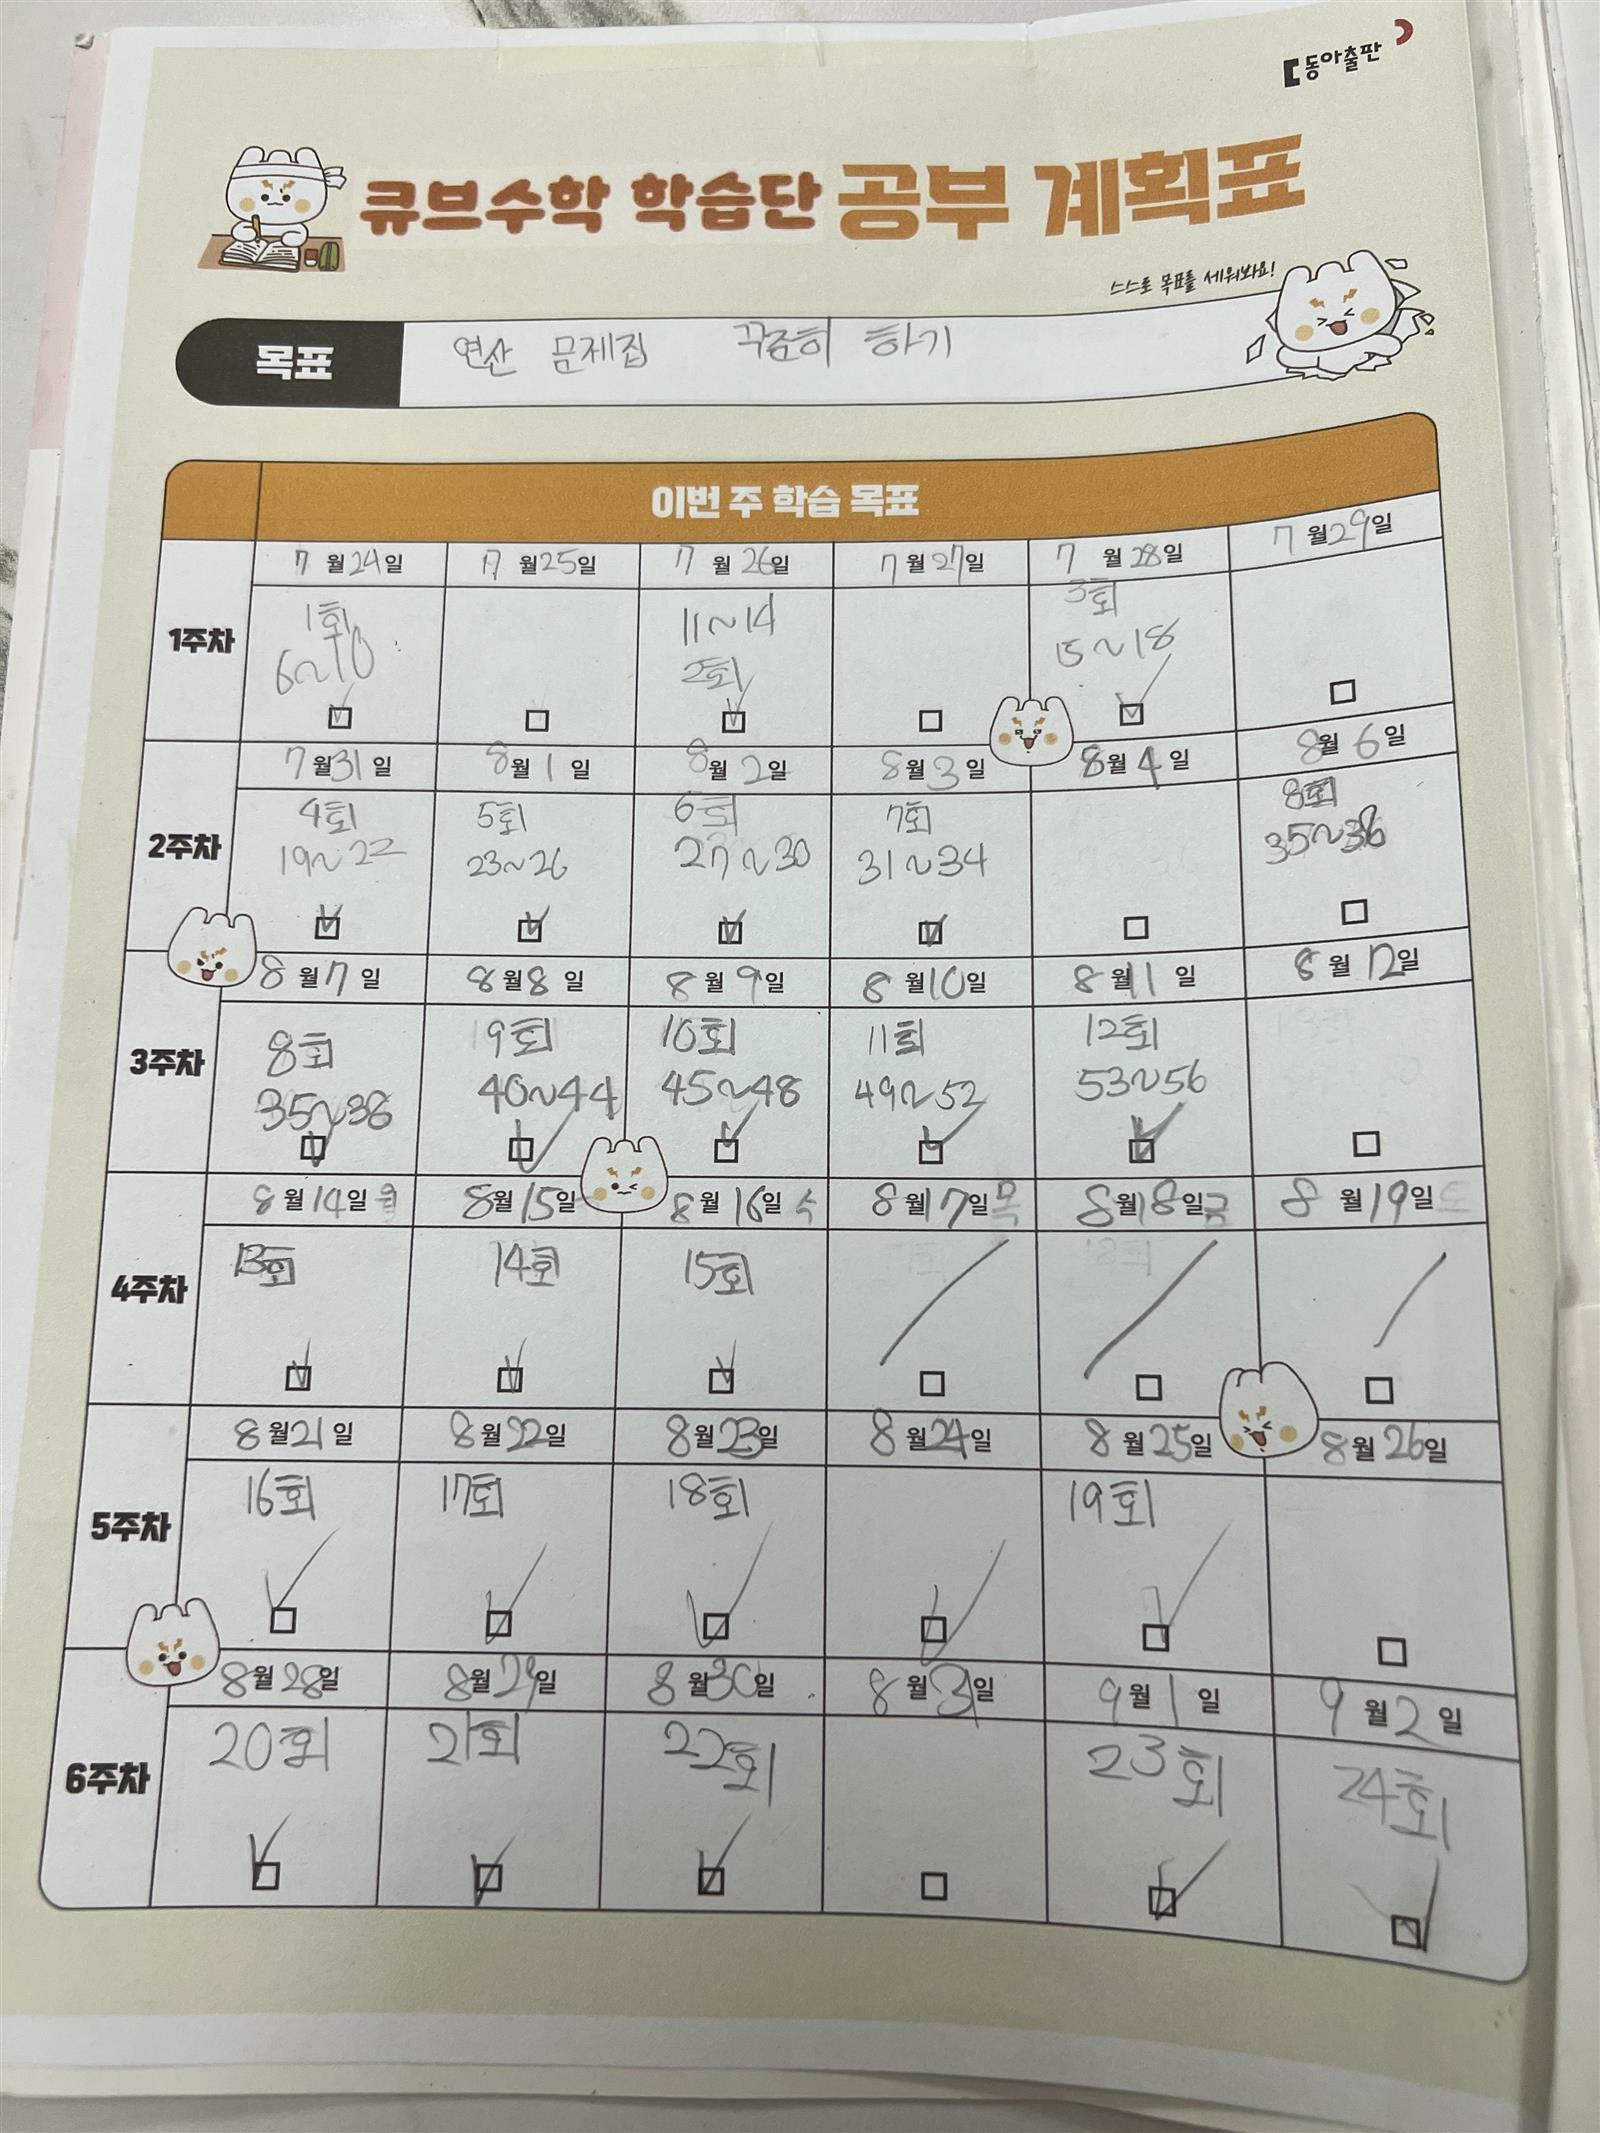 동아출판
큐브수학 학습단 공부 계획표
스스로 목표를 세워봐요!
목표 연산 문제집 꾸준히 하기
이번 주 학습 목표
1주차
7월24일 7월25일 7월26일 7월27일 7월28일 7월29일
1회 11~14 3회
6~10 2회 15~18
2주차
7월31일 8월1일 8월2일 8월3일 8월4일 8월6일
4회 5회 6회 7회 8회
19~22 23~26 27~30 31~34 35~38
3주차
8월7일 8월8일 8월9일 8월10일 8월11일 8월12일
8회 9회 10회 11회 12회
35~38 40~44 45~48 49~52 53~56
4주차
8월14일월 8월15일 8월16일수 8월17일목 8월18일금 8월19일토
13회 14회 15회
5주차
8월21일 8월22일 8월23일 8월24일 8월25일 8월26일
16회 17회 18회 19회
6주차
8월28일 8월29일 8월30일 8월31일 9월1일 9월2일
20회 21회 22회 23회 24회